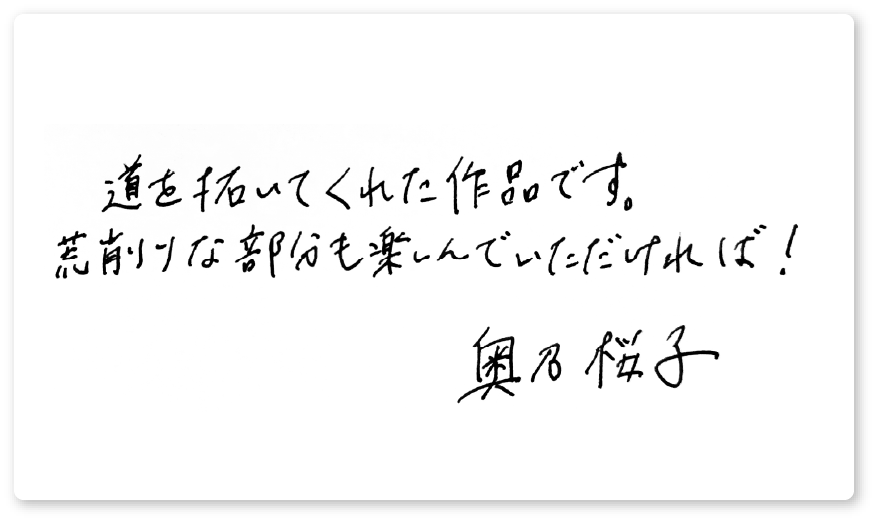 道を拓いてくれた作品です。
荒削りな部分も楽しんでいただければ!
奥乃桜子